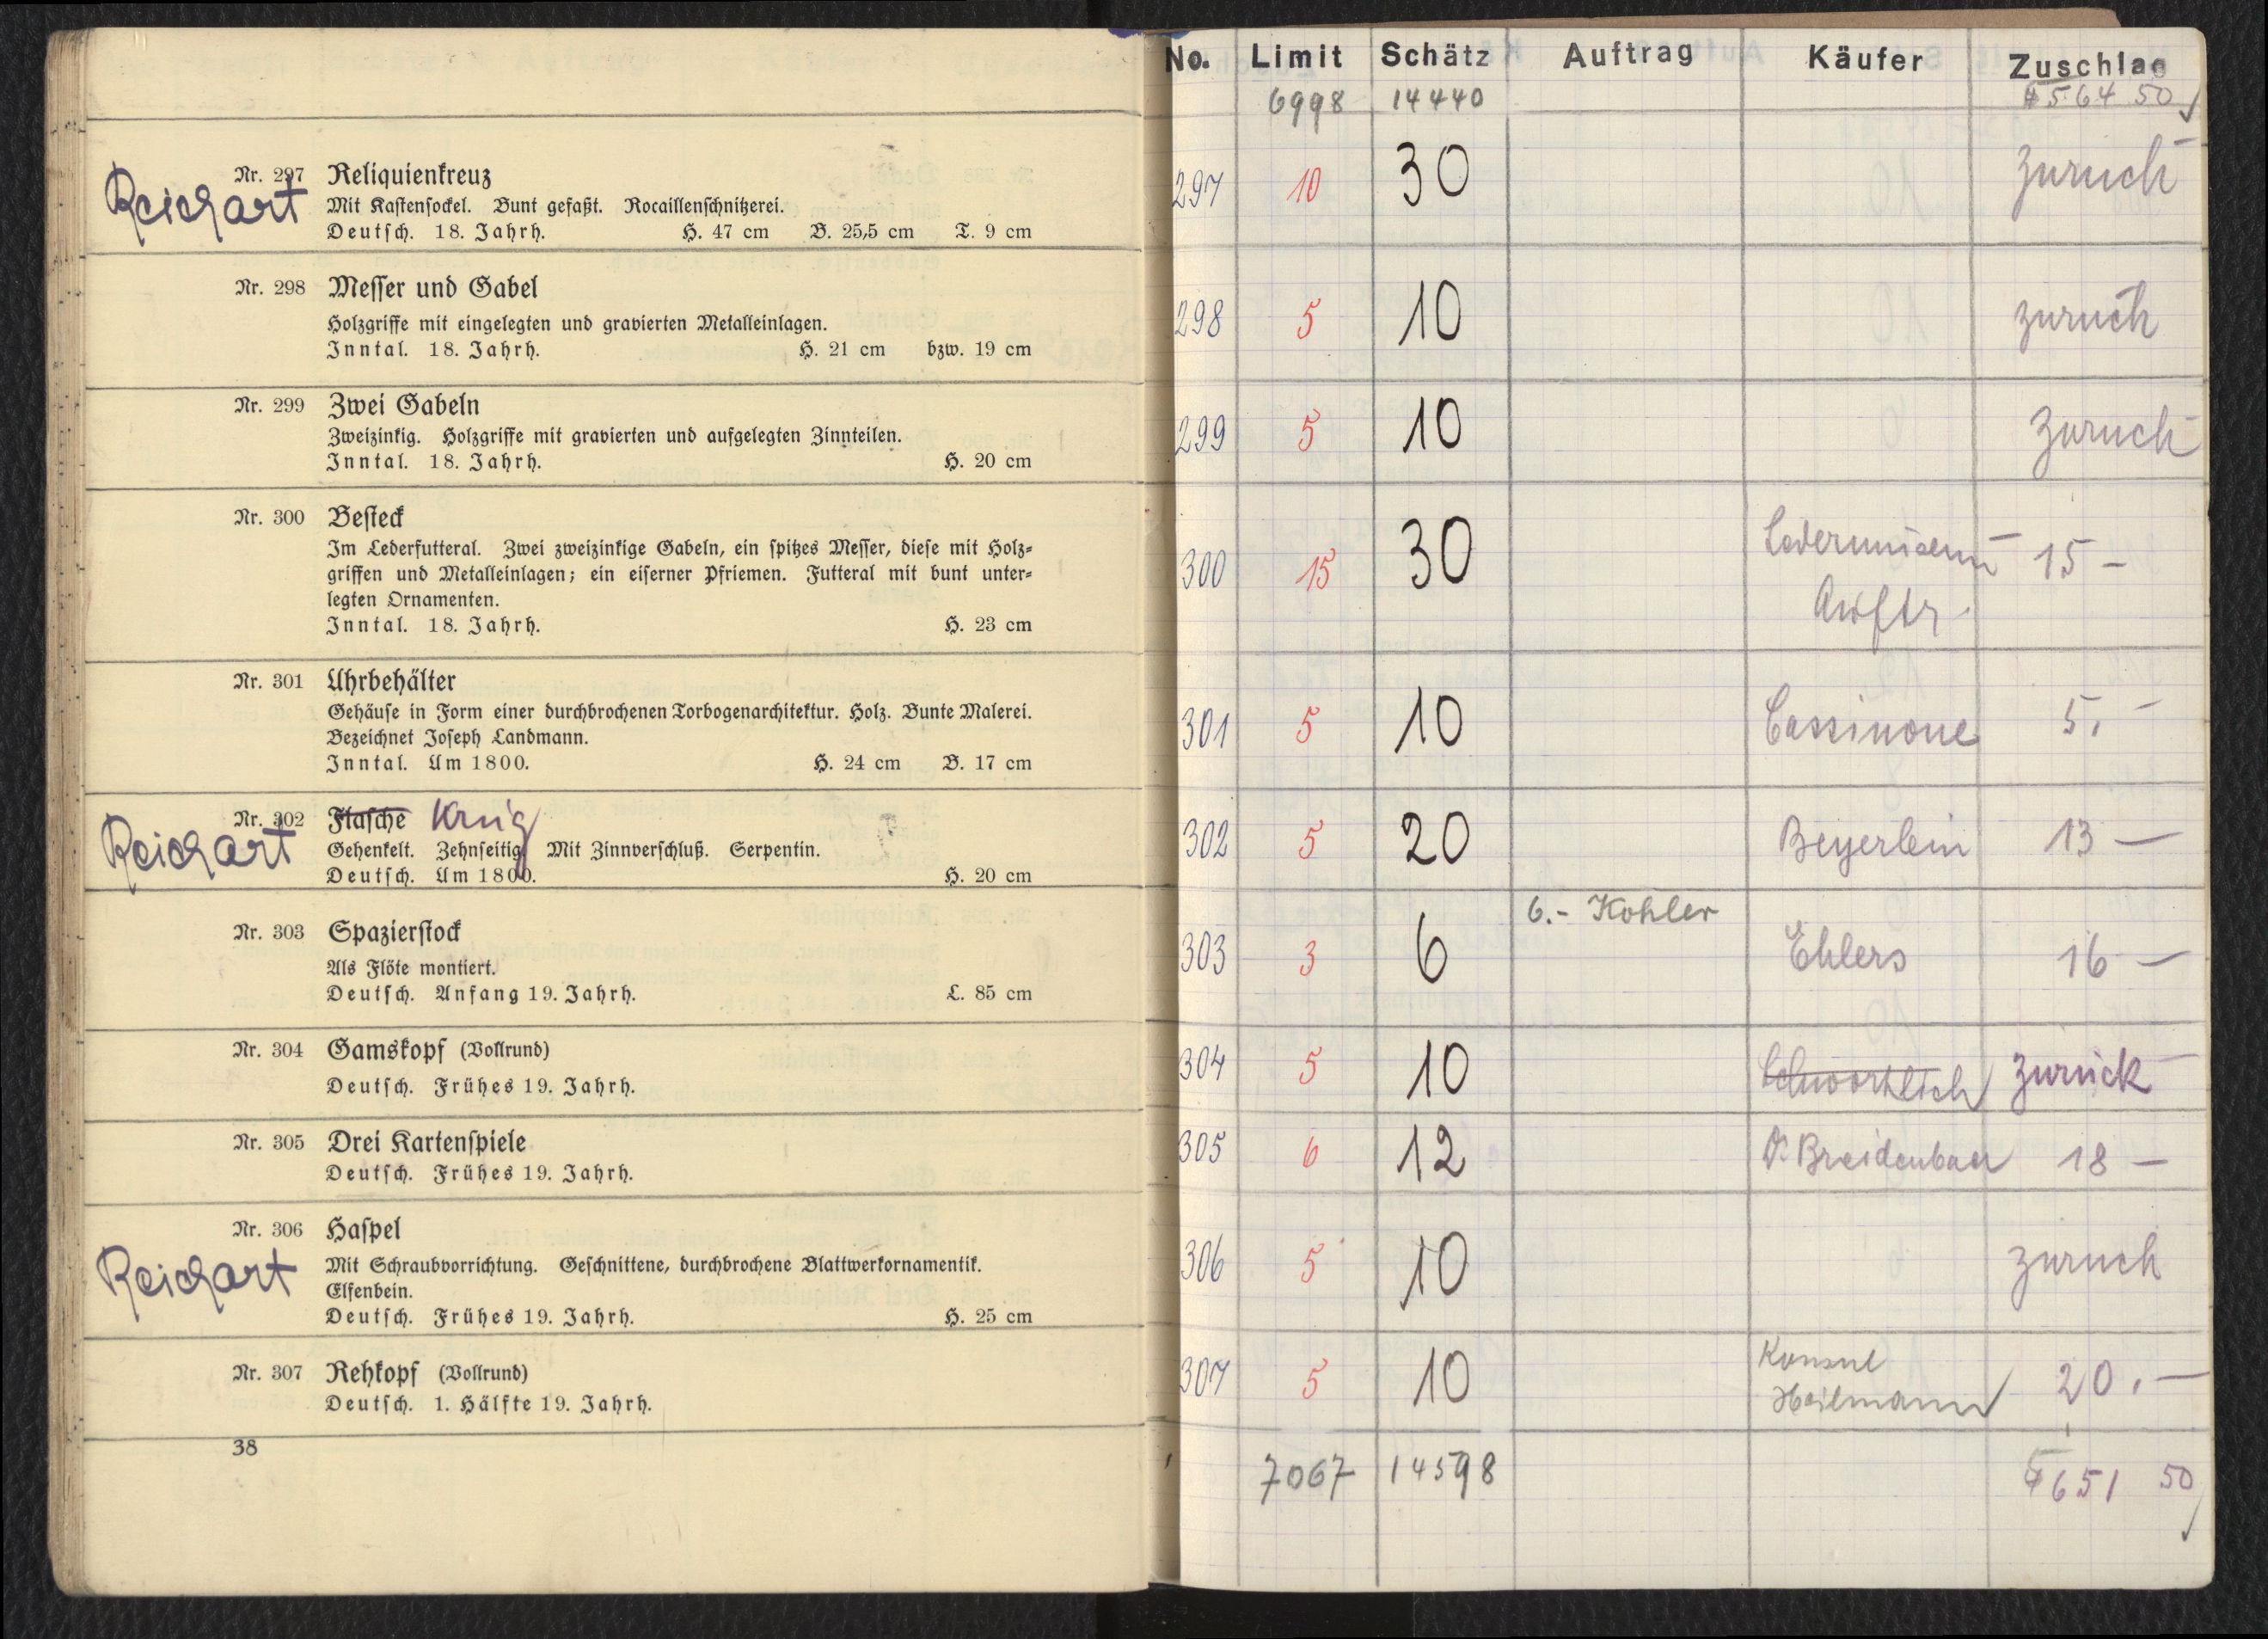 Reichart
Nr. 297 Reliquienkreuz
Mit Kastensockel. Bunt gefaßt. Rocaillenschnitzerei.
Deutsch. 18. Jahrh. H. 47 cm B. 25,5 cm T. 9 cm
Nr. 298 Messer und Gabel
Holzgriffe mit eingelegten und gravierten Metalleinlagen.
Inntal. 18. Jahrh. H. 21 cm bzw. 19 cm
Nr. 299 Zwei Gabeln
Zweizinkig. Holzgriffe mit gravierten und aufgelegten Zinnteilen.
Inntal. 18. Jahrh. H. 20 cm
Nr. 300 Besteck
Im Lederfutteral. Zwei zweizinkige Gabeln, ein spitzes Messer, diese mit Holz-
griffen und Metalleinlagen; ein eiserner Pfriemen. Futteral mit bunt unter-
legten Ornamenten.
Inntal. 18. Jahrh. H. 23 cm
Nr. 301 Uhrbehälter
Gehäuse in Form einer durchbrochenen Torbogenarchitektur. Holz. Bunte Malerei.
Bezeichnet Joseph Landmann.
Inntal. Um 1800. H. 24 cm B. 17 cm
Reichart
Nr. 302 Flasche Krug
Gehenkelt. Zehnseitig. Mit Zinnverschluß. Serpentin.
Deutsch. Um 1800. H. 20 cm
Nr. 303 Spazierstock
Als Flöte montiert.
Deutsch. Anfang 19. Jahrh. L. 85 cm
Nr. 304 Gamskopf (Vollrund)
Deutsch. Frühes 19. Jahrh.
Nr. 305 Drei Kartenspiele
Deutsch. Frühes 19. Jahrh.
Reichart
Nr. 306 Haspel
Mit Schraubvorrichtung. Geschnittene, durchbrochene Blattwerkornamentik.
Elfenbein.
Deutsch. Frühes 19. Jahrh. H. 25 cm
Nr. 307 Rehkopf (Vollrund)
Deutsch. 1. Hälfte 19. Jahrh.
38
No. Limit Schätz Auftrag Käufer Zuschlag
6998 14440 5564 50
297 10 30 zurück
298 5 10 zurück
299 5 10 zurück
300 15 30 Ledermuseum 15 –
Auftr.
301 5 10 Cassinone 5.–
302 5 20 Beyerlein 13 –
6.- Kohler
303 3 6 Ehlers 16 –
304 5 10 zurück
305 6 12 Dr. Breidenbach 18 –
306 5 10 zurück
Konsul
307 5 10 Heilmann 20.–
7067 14598 5651 50